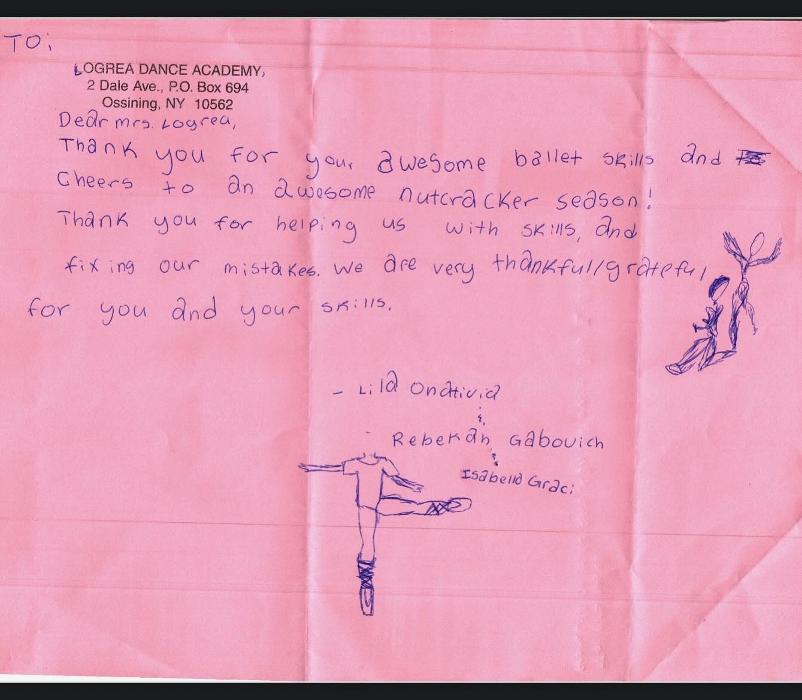 TO:
LOGREA DANCE ACADEMY,
2 Dale Ave., P.O. Box 694
Ossining, NY 10562
Dear mrs. Logrea,
Thank you for your awesome ballet skills and
Cheers to an awesome nutcracker season!
Thank you for helping us with skills, and
fixing our mistakes. We are very thankful/grateful
for you and your skills.
- Lila Onativia
&
Rebekah Gabovich
&
Isabella Graci